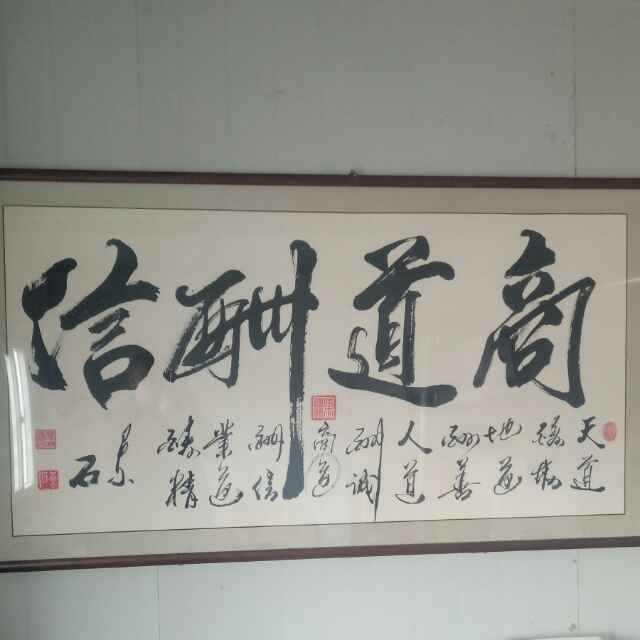 商道酬信
天道
酬勤
地道
酬善
人道
酬诚
商道
酬信
業道
酬精